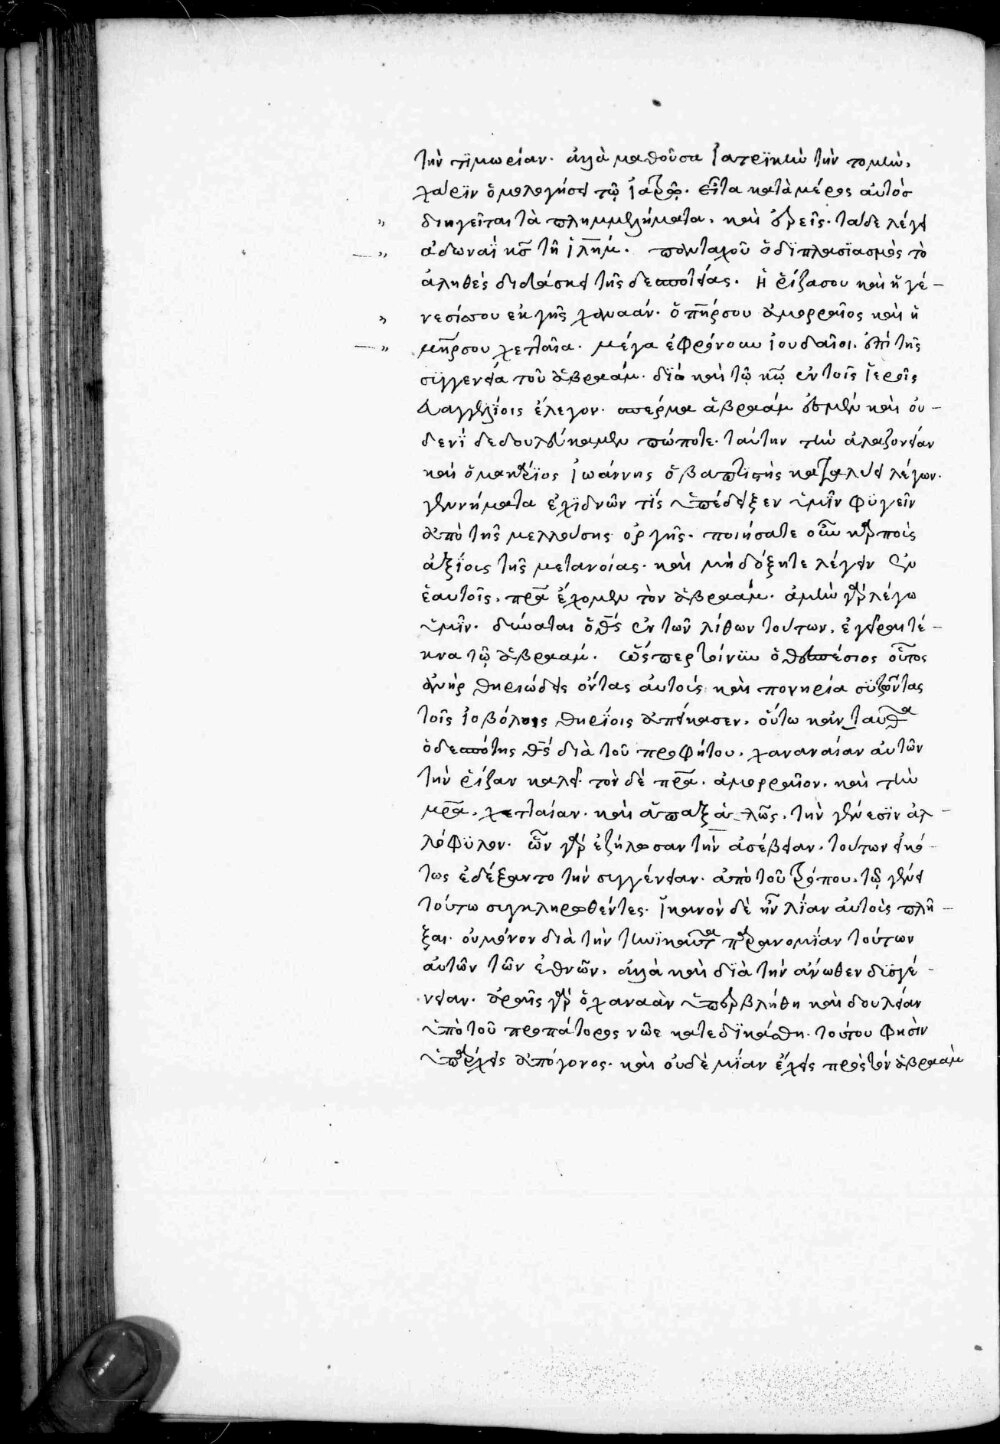 τὴν τϊμωρίαν· ἀλλὰ μαθοῦσα ἰατρϊκὴν τὴν τομὴν,
χάρϊν ὁμολογήσει τῷ ἰατρῷ. εἶτα κατὰ μέρος αὐτὸς
διηγεῖται τὰ πλημμελήματα. καὶ ἐρεῖς· τάδε λέγει
ἀδωναῒ κς τῇ ἱλημ. πανταχοῦ ὁ δϊπλασϊασμὸς τὸ
ἀληθὲς διδάσκει τῆς δεσποτείας. ἡ ῥίζα σου καὶ ἡ γέ-
νεσίς σου ἐκ γῆς χαναάν. ὁ πηρ σου ἀμορραῖος καὶ ἡ
μηρ σου χετταία. μέγα ἐφρόνουν ἰουδαῖοι. ἐπὶ τῆς
συγγενεία τοῦ ἀβραάμ. διὸ καὶ τῷ κω ἐν τοῖς ἱεροῖς
εὐαγγελίοις ἔλεγον. σπέρμα ἀβραάμ ἐσμεν καὶ οὐ-
δενὶ δεδουλεύκαμεν πώποτε. ταύτην τὴν ἀλαζονείαν
καὶ ὁ μακάριος ἰωάννης ὁ βαπτιστὴς καταλύει λέγων·
γεννήματα ἐχϊδνῶν τίς ὑπέδειξεν ὑμῖν φϋγεῖν
ἀπὸ τῆς μελλούσης ὀργῆς. ποιήσατε οὖν καρποὺς
ἀξΐους τῆς μετανοίας. καὶ μὴ δόξητε λέγειν ἐν
ἑαυτοῖς. πρα ἔχομεν τὸν ἀβραάμ. ἀμὴν γὰρ λέγω
ὑμῖν. δύναται ὁ θς ἐκ τῶν λίθων τούτων. ἐγεῖραι τέ-
κνα τῷ ἀβραάμ. ὥσπερ τοίνϋν ὁ θεσπέσιος οὗτος
ἀνὴρ θηριώδεις ὄντας αὐτοὺς καὶ πονηρία συζῶντας
τοῖς ἰοβόλοις θηρΐοις ἀπείκασεν. οὕτω κἀνταῦθα
ὁ δεσπότης θς διὰ τοῦ προφήτου. χαναναίαν αὐτῶν
τὴν ῥίζαν καλεῖ. τὸν δὲ πρα. ἀμορραῖον. καὶ τὴν
μρα. χετταίαν. καὶ ἁπαξ ἁπλῶς. τὴν γένεσϊν ἀλ-
λόφϋλον. ὧν γὰρ ἐζήλωσαν τὴν ἀσέβειαν. τούτων εἰκό-
τως ἐδέξαντο τὴν συγγένειαν. ἀπὸ τοῦ τρόπου. τῷ γένει
τούτω συγκληρωθέντες. ἱκανὸν δὲ ἦν λΐαν αὐτοὺς πλῆ-
ξαι. οὐ μόνον διὰ τὴν τηνϊκαῦτα παρανομΐαν τούτων
αὐτῶν τῶν ἐθνῶν. ἀλλὰ καὶ δϊὰ τὴν ἄνωθεν δυσγέ-
νειαν. ἀραῖς γὰρ ὁ χαναὰν ὑπερβλήθη καὶ δουλείαν
ὑπὸ τοῦ προπάτορος νῶε κατεδϊκάσθη. τούτου φησὶν
ὑπάρχεις ἀπόγονος. καὶ οὐδὲ μΐαν ἔχεις πρὸς τὸν ἀβραὰμ